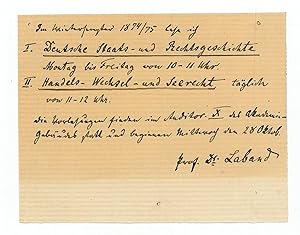 Im Wintersemester 1874/75 lese ich
I. Deutsche Staats- und Rechtsgeschichte
Montag bis Freitag von 10-11 Uhr
II. Handels- Wechsel- und Seerecht, täglich
von 11-12 Uhr.
Die Vorlesungen finden im Auditor. X des Akademie-
gebäudes statt und beginnen Mittwoch den 28 Oktob.
Prof. Dr. Laband